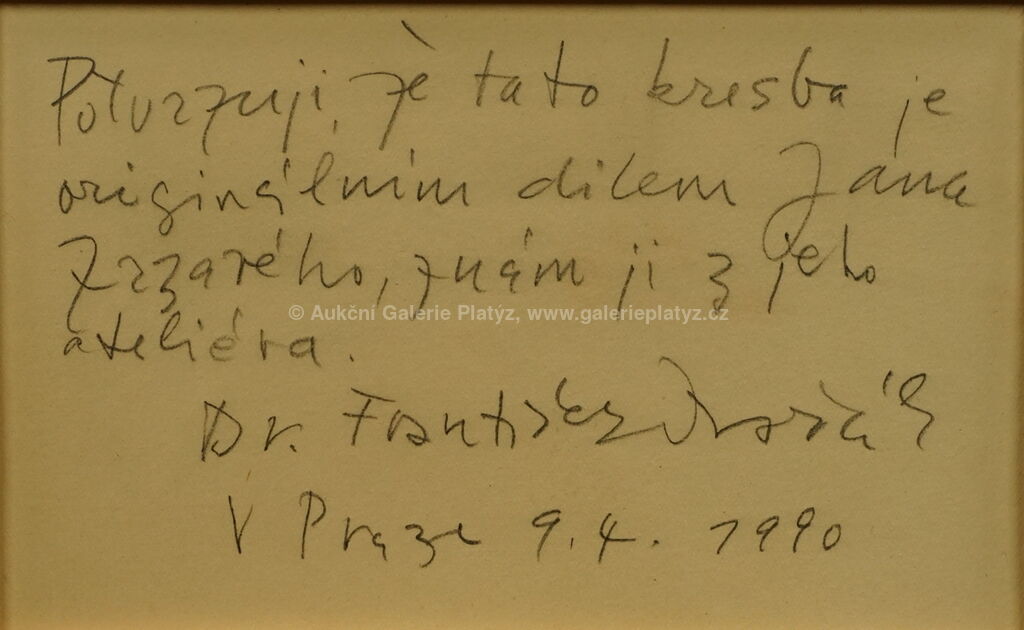 Potvrzuji, že tato kresba je
originálním dílem Jana
Zrzavého, znám ji z jeho
© Aukční Galerie Platýz, www.galerieplatyz.cz
ateliéra.
Dr. František Dvořák
V Praze 9.4. 1990